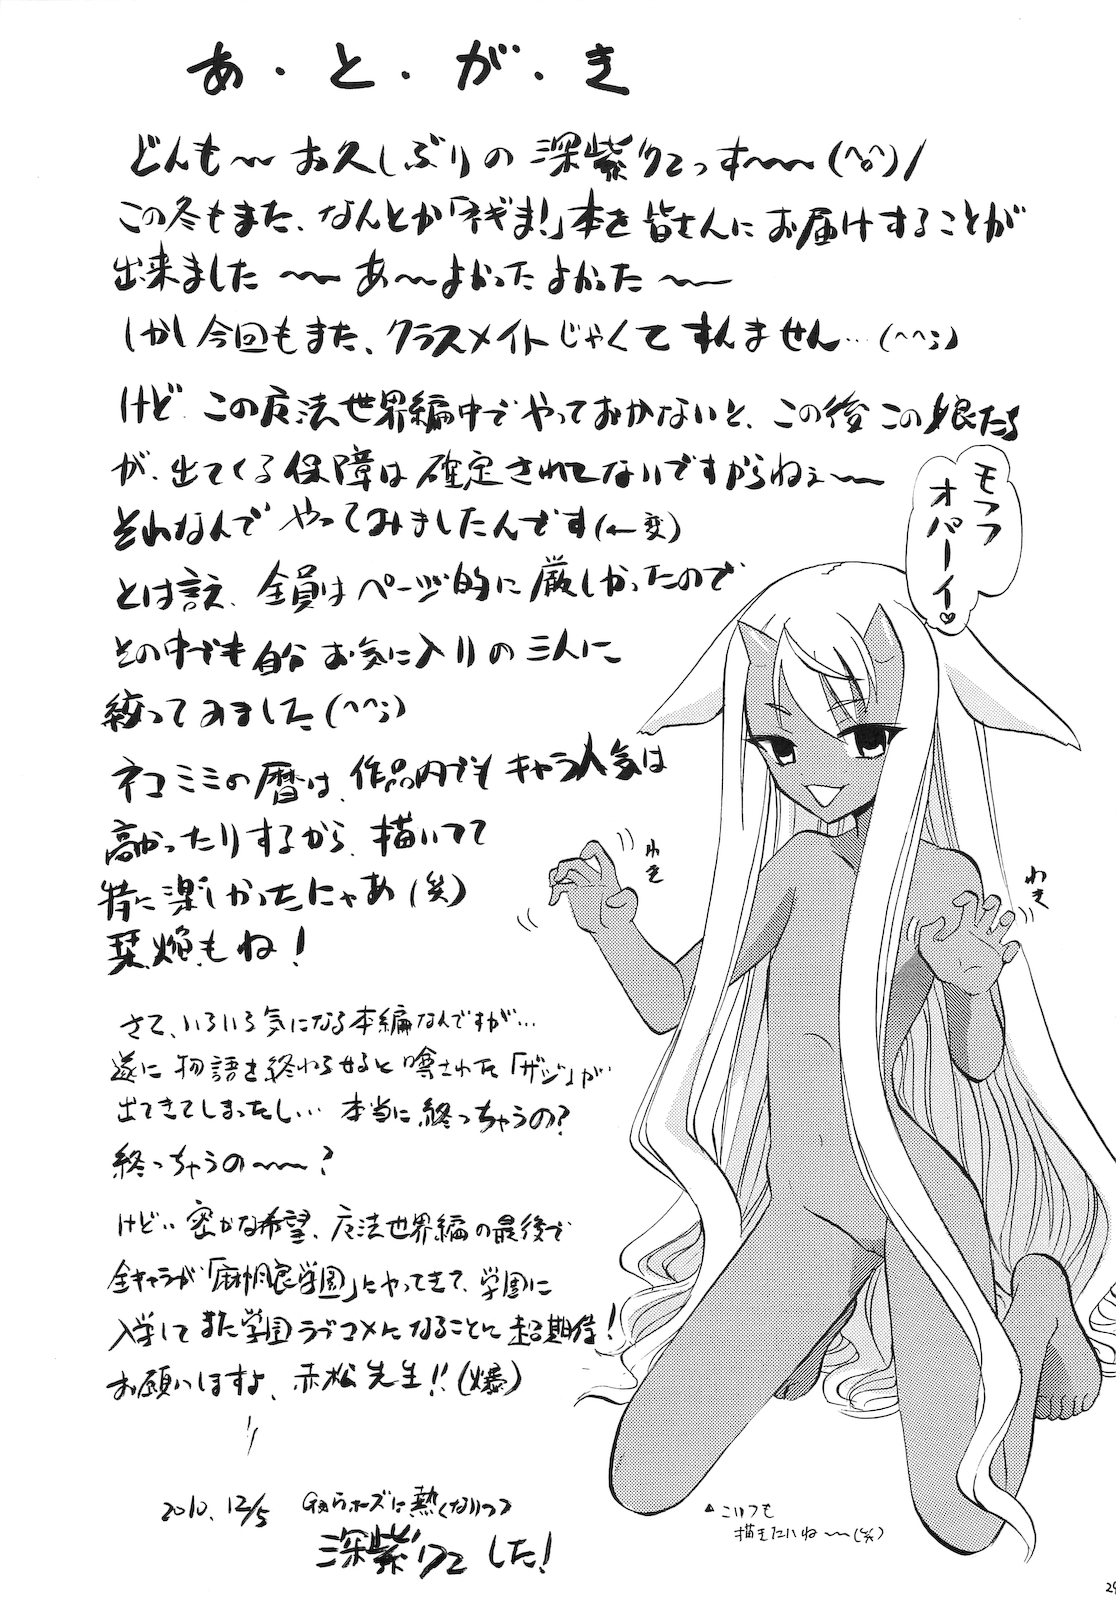 あ・と・が・き
どんも〜〜お久しぶりの深紫クロっす〜〜〜(^o^)/
この冬もまた、なんとか「ネギま!」本を皆さんにお届けすることが
出来ました〜〜あ〜〜よかったよかった〜〜
しかし今回もまた、クラスメイトじゃくてすんません…(^^;)
けど、この魔法世界編中でやっておかないと、この後この娘たち
が、出てくる保障は確定されてないですからねぇ〜〜
それなんでやってみましたんです(←変)
とは言え、全員はページ的に厳しかったので
その中でも自分お気に入りの三人に
絞ってみました(^^;)
ネコミミの暦は、作品内でもキャラ人気は
高かったりするから、描いてて
特に楽しかったにゃあ(笑)
栞、焔もね!
さて、いろいろ気になる本編なんですが…
遂に物語を終わらせると噂された「ザジ」が
出てきてしまったし…本当に終っちゃうの?
終っちゃうの〜〜?
けど…密かな希望、魔法世界編の最後で
全キャラが「麻帆良学園」にやってきて、学園に
入学してまた学園ラブコメになることに超期待!
お願いしますよ、赤松先生!!(爆)
2010.12/5
に熱くなりつつ
深紫クロでした!
モフフ
オパーイ♡
わき
わき
▲こいつも
描きたいね〜〜(笑)